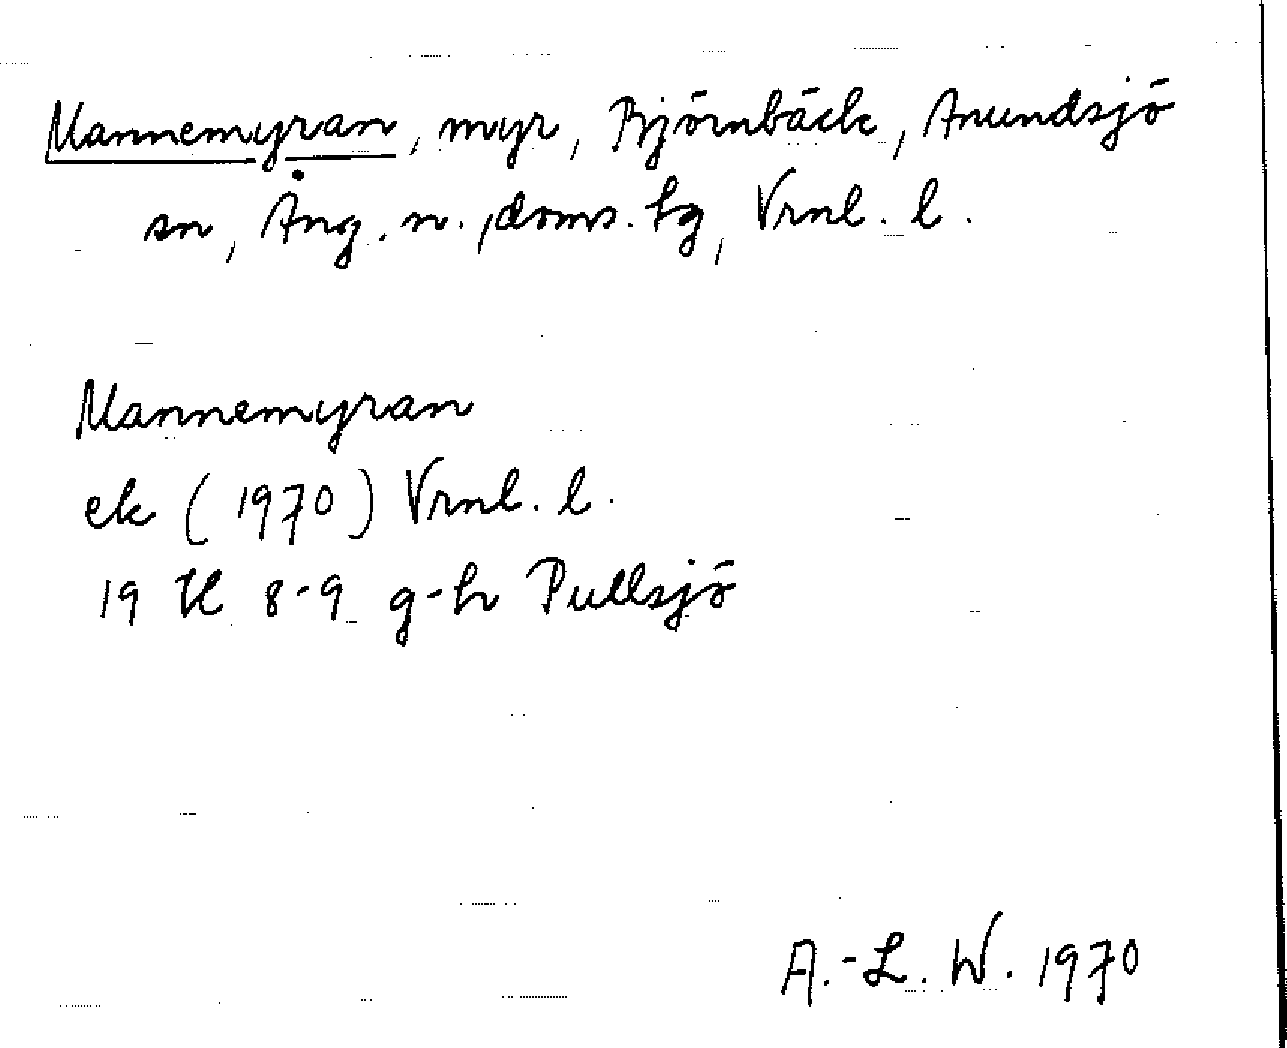 Mannemyran, myr, Björnbäck, Anundsjö
sn, Ång. n., doms. hg, Vrnl. l.
Mannemyran
ek (1970) Vrnl. l.
19 H 8-9 g-h Pullsjö
A.-L. W. 1970